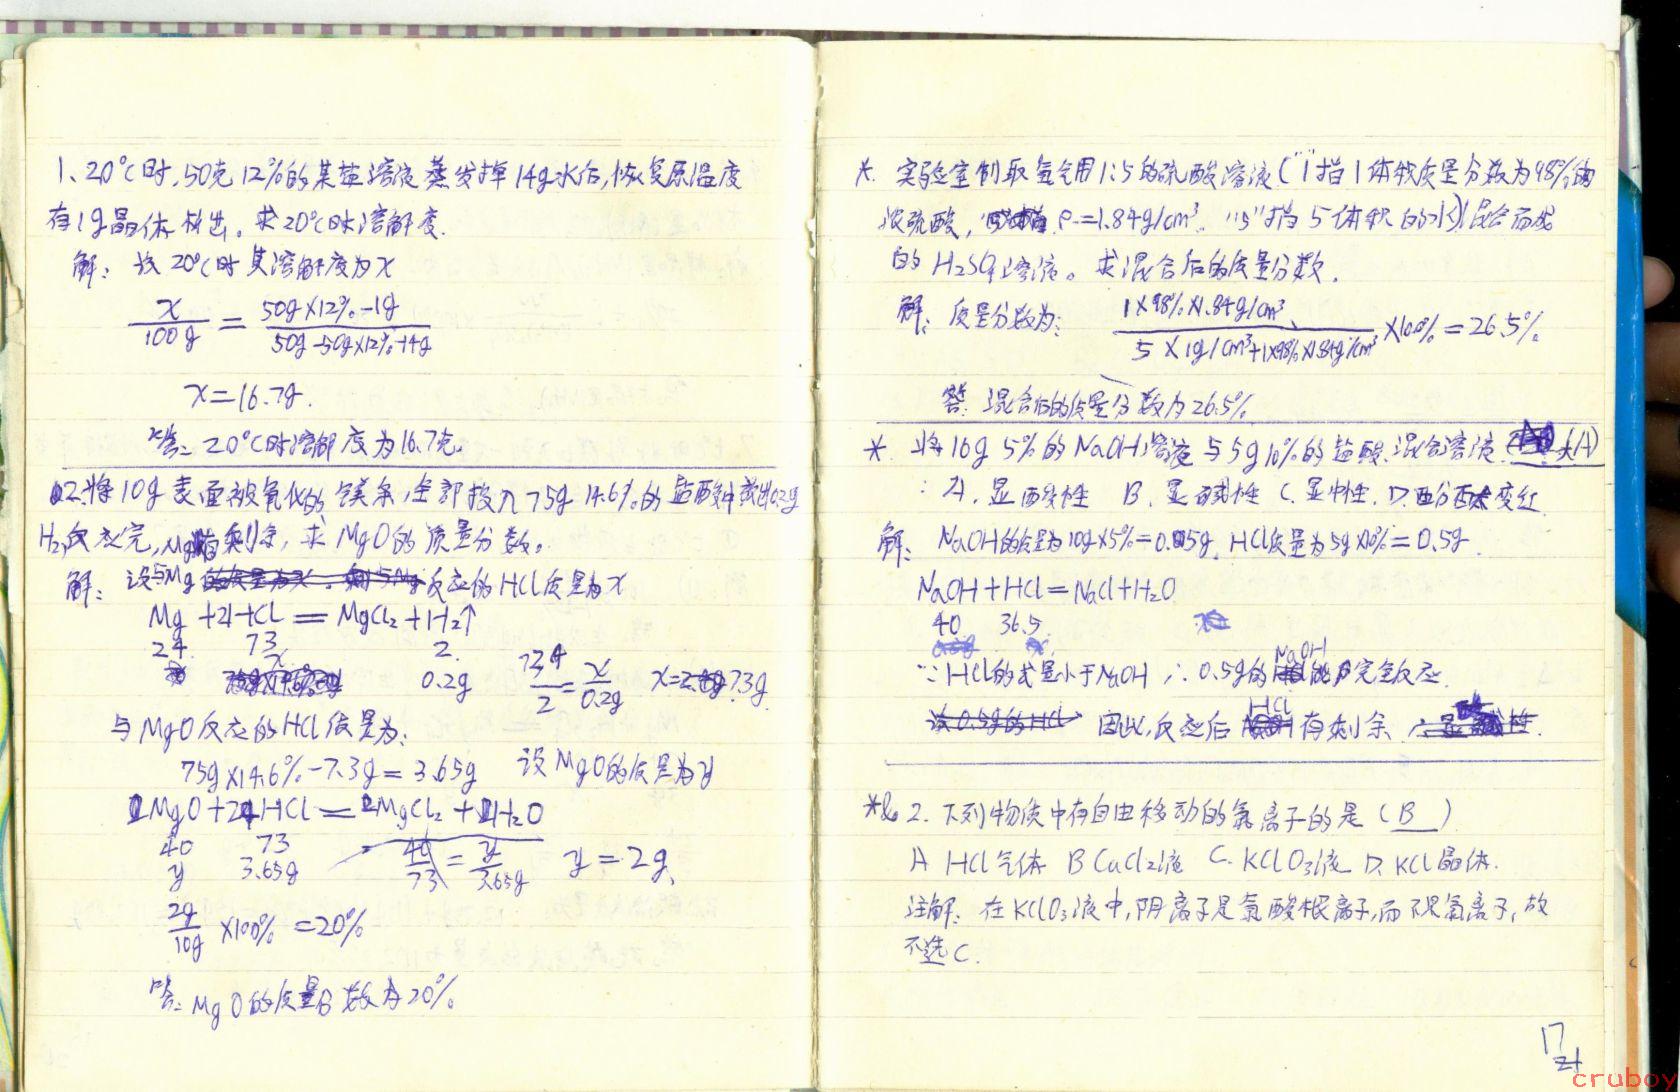 1、20°C时,50克12%的某盐溶液蒸发掉14g水后,恢复原温度
有1g晶体析出。求20°C时溶解度.
解: 设20°C时其溶解度为x
x/100g = (50g×12%-1g)/(50g-50g×12%-14g)
x=16.7g.
答: 20°C时溶解度为16.7克.
2.将10g表面被氧化的镁条,全部投入75g 14.6%的盐酸中放出0.2g
H₂,反应完,Mg 剩余,求MgO的质量分数。
解: 设与Mg 反应的HCl质量为x
Mg + 2HCl = MgCl₂ + H₂↑
24 73 2
x 0.2g 73/2 = x/0.2g x= 7.3g
与MgO反应的HCl质量为:
75g×14.6%-7.3g=3.65g 设MgO的质量为y
MgO+2HCl=MgCl₂+H₂O
40 73
y 3.65g 40/73 = y/3.65g y=2g
2g/10g ×100% =20%
答: MgO的质量分数为20%
*. 实验室制取氢气用1:5的硫酸溶液("1"指1体积质量分数为98%的
浓硫酸, ρ=1.84g/cm³ "5"指5体积的水)混合而成
的H₂SO₄溶液。求混合后的质量分数.
解: 质量分数为: (1×98%×1.84g/cm³)/(5×1g/cm³+1×98%×1.84g/cm³) ×100%=26.5%
答: 混合后的质量分数为26.5%
*. 将10g 5%的NaOH溶液与5g10%的盐酸混合溶液 (A)
A. 显酸性 B. 显碱性 C. 显中性. D. 酚酞变红
解: NaOH的质量为10g×5%=0.5g. HCl质量为5g×10%=0.5g
NaOH+HCl=NaCl+H₂O
40 36.5
∵HCl的式量小于NaOH ∴0.5g的NaOH能完全反应.
因此,反应后HCl有剩余
* 2. 下列物质中有自由移动的氯离子的是(B)
A HCl气体 B CuCl₂液 C. KClO₃液 D. KCl晶体.
注解: 在KClO₃液中,阴离子是氯酸根离子,而不是氯离子,故
不选C.
17
21
cruboy